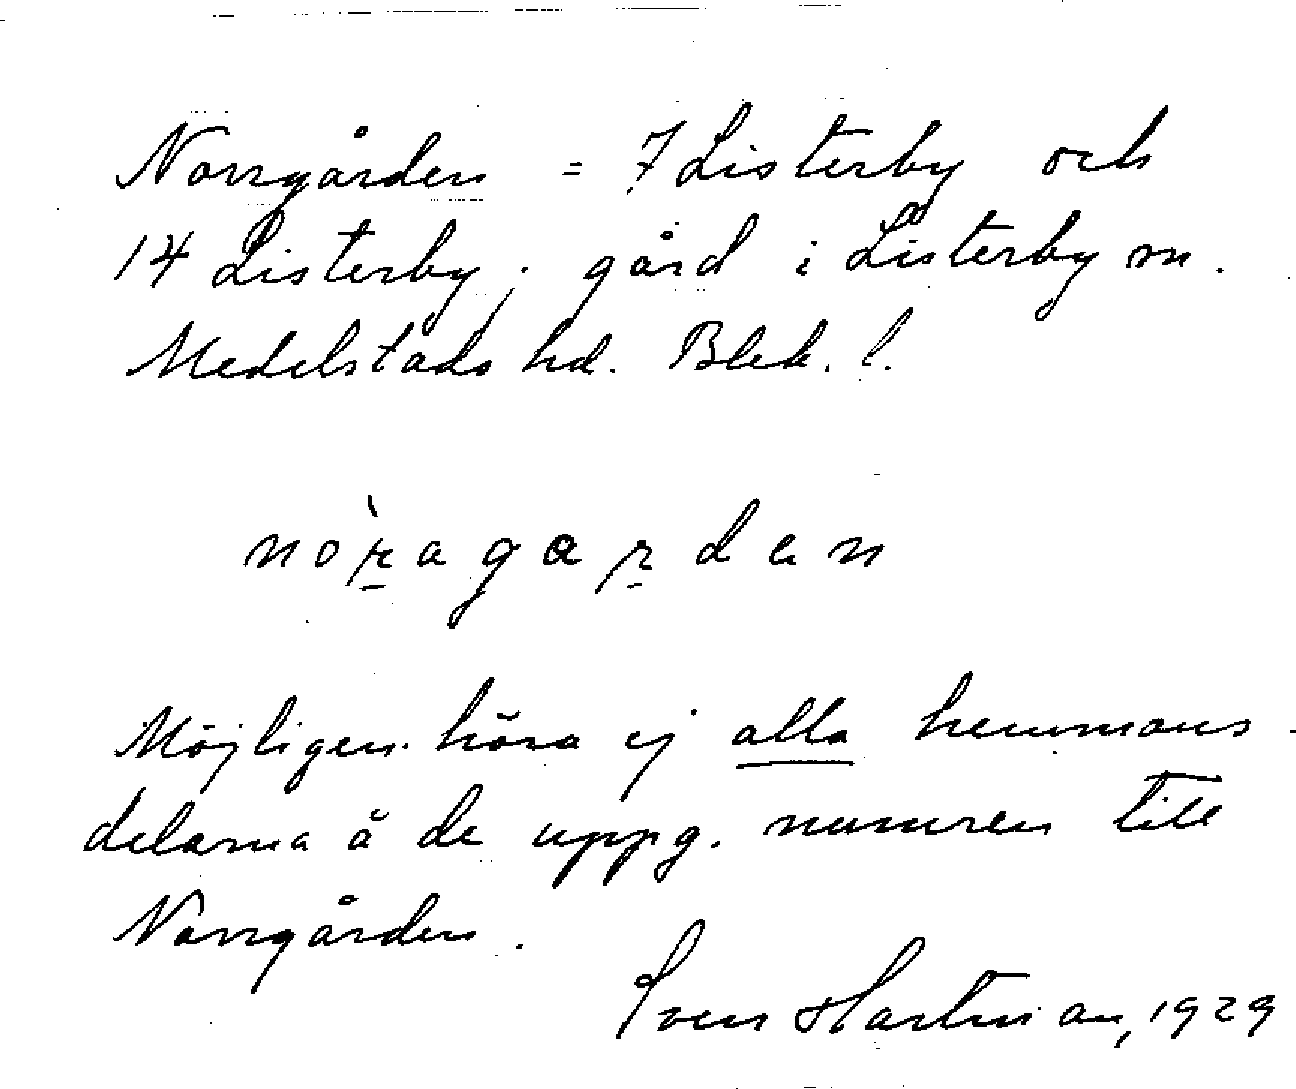 Norrgården = 7 Listerby och
14 Listerby; gård i Listerby sn.
Medelstads hd. Blek. l.
nòragarden
Möjligen höra ej alla hemmans-
delarna å de uppg. numren till
Norrgården.
Sven Hartman, 1929